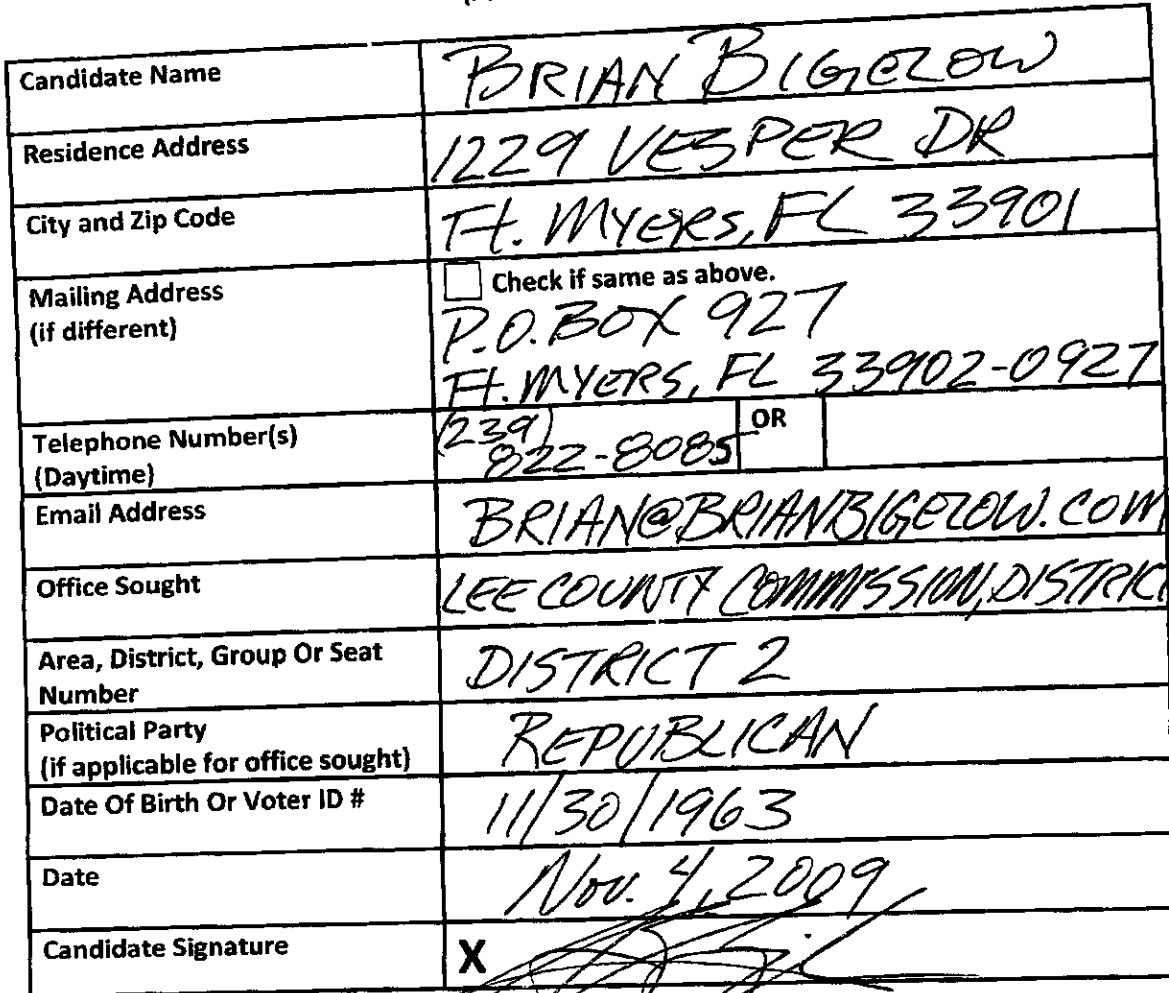 Candidate Name BRIAN BIGELOW
Residence Address 1229 VESPER DR
City and Zip Code Ft. MYERS, FL 33901
Mailing Address
(if different)
Check if same as above.
P.O. BOX 927
Ft. MYERS, FL 33902-0927
Telephone Number(s)
(Daytime)
(239)
822-8085
OR
Email Address BRIAN@BRIANBIGELOW.COM
Office Sought LEE COUNTY COMMISSION, DISTRICT
Area, District, Group Or Seat
Number
DISTRICT 2
Political Party
(if applicable for office sought)
REPUBLICAN
Date Of Birth Or Voter ID # 11/30/1963
Date Nov. 4, 2009
Candidate Signature X